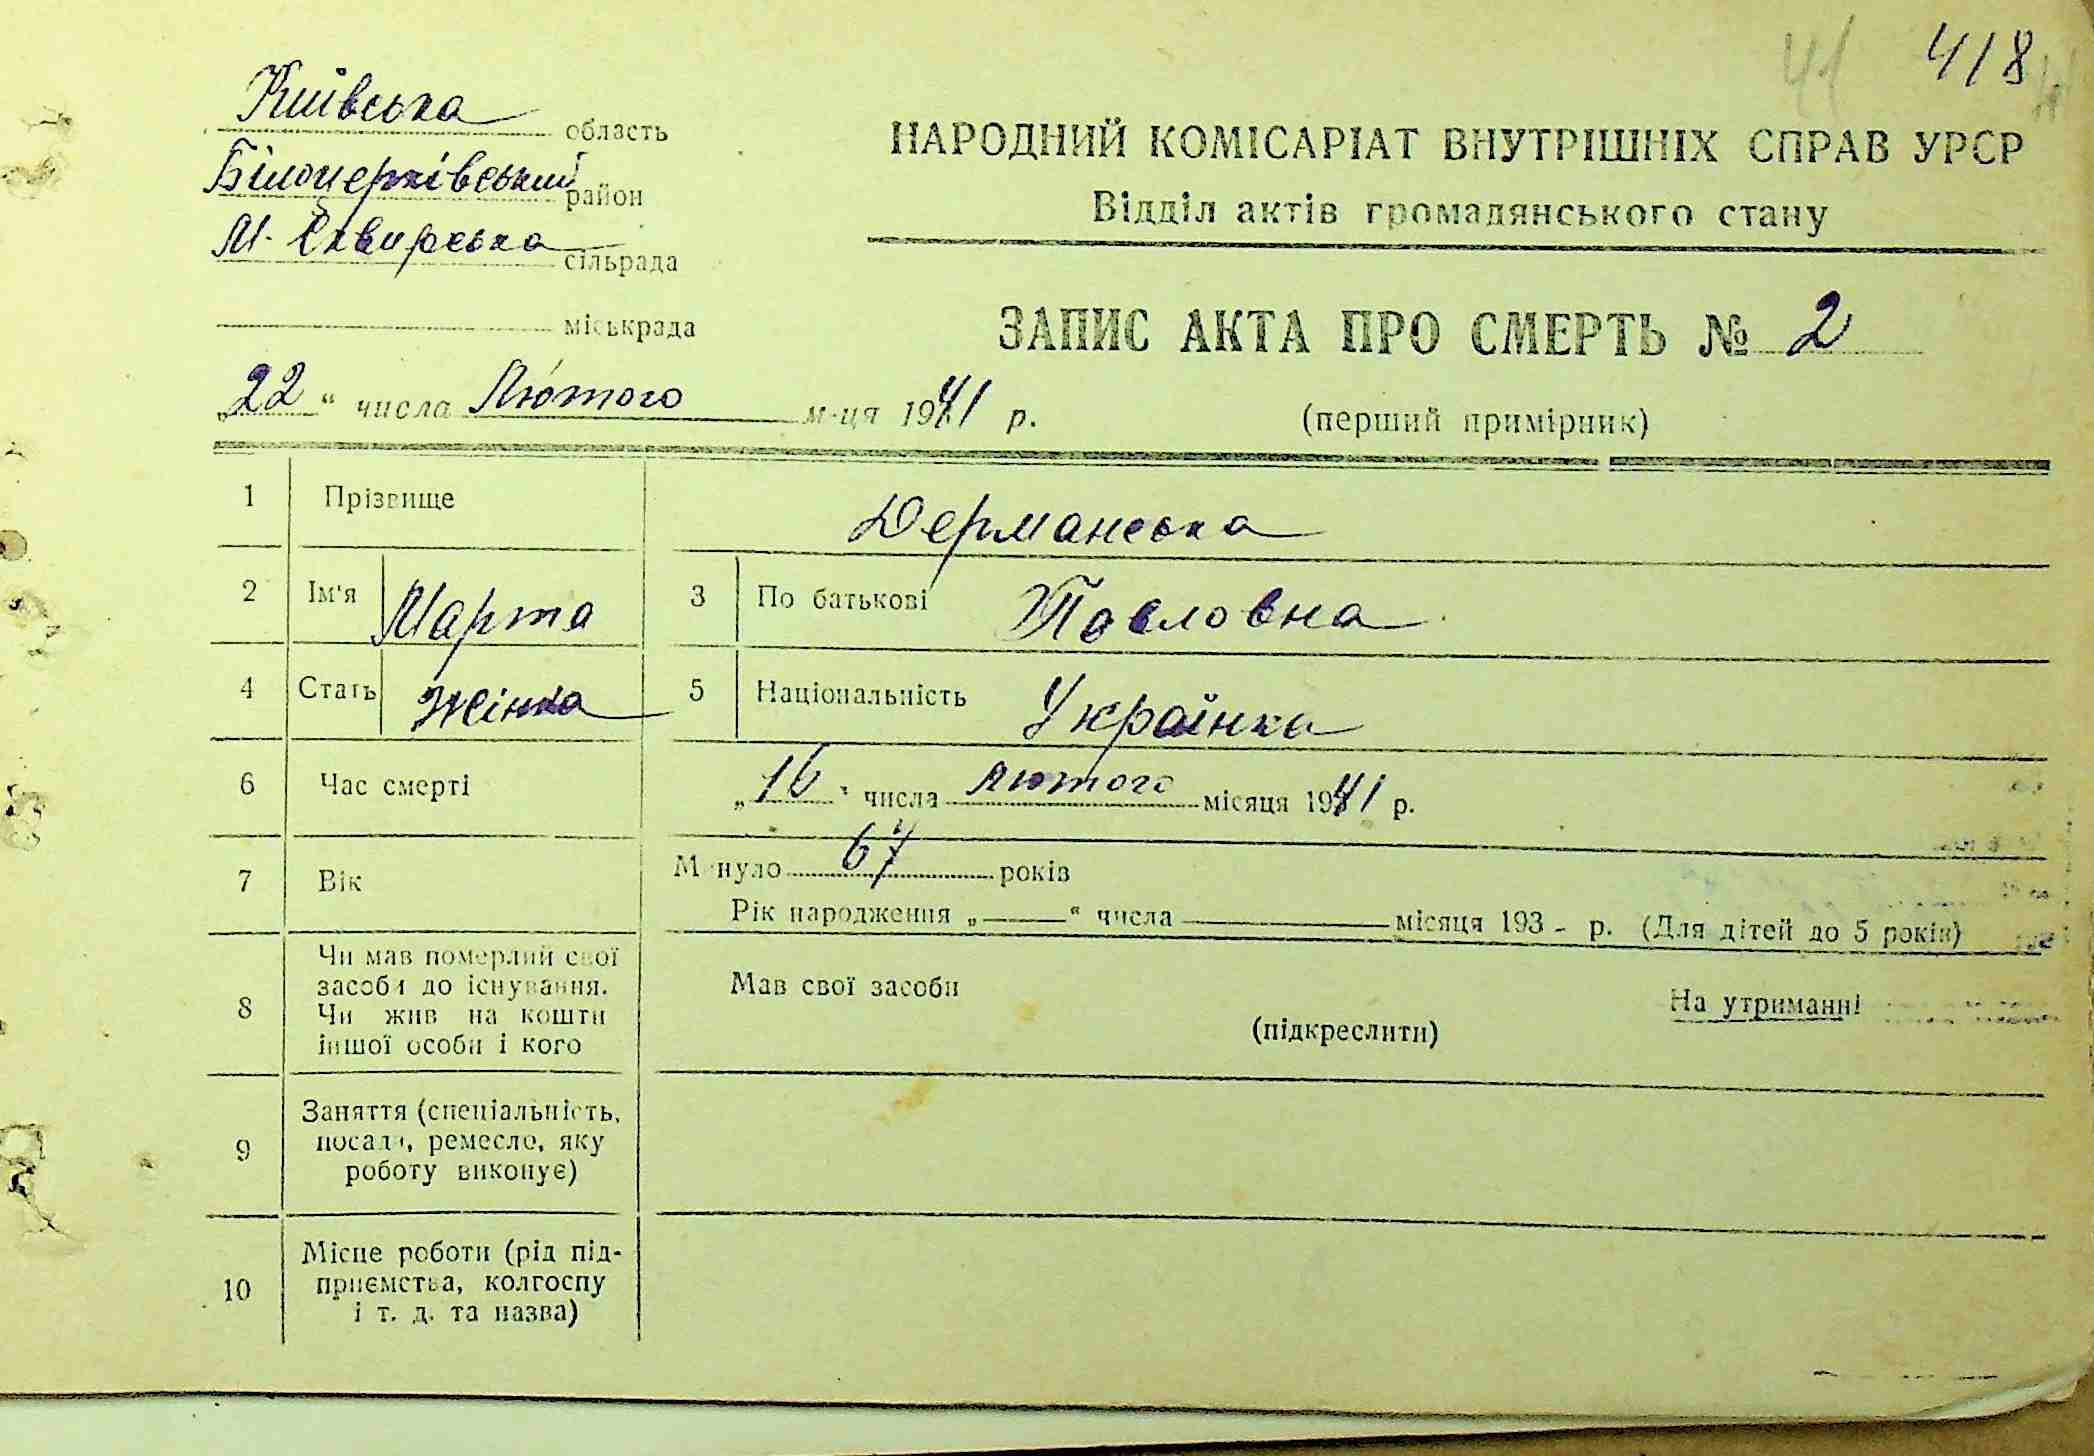 41 418
Київська область
Білоцерківський район
М. Сквирська сільрада
міськрада
НАРОДНИЙ КОМІСАРІАТ ВНУТРІШНІХ СПРАВ УРСР
Відділ актів громадянського стану
ЗАПИС АКТА ПРО СМЕРТЬ № 2
(перший примірник)
„22“ числа Лютого м-ця 1941 р.
1 Прізвище Дерманська
2 Ім'я Марта 3 По батькові Павловна
4 Стать Жінка 5 Національність Українка
6 Час смерті „16“ числа лютого місяця 1941 р.
7 Вік Минуло 67 років
Рік народження „—“ числа — місяця 193 - р. (Для дітей до 5 років)
8 Чи мав померлий свої
засоби до існування.
Чи жив на кошти
іншої особи і кого
Мав свої засоби
(підкреслити)
На утриманні
9 Заняття (спеціальність,
посада, ремесло, яку
роботу виконує)
10 Місце роботи (рід під-
приємства, колгоспу
і т. д. та назва)